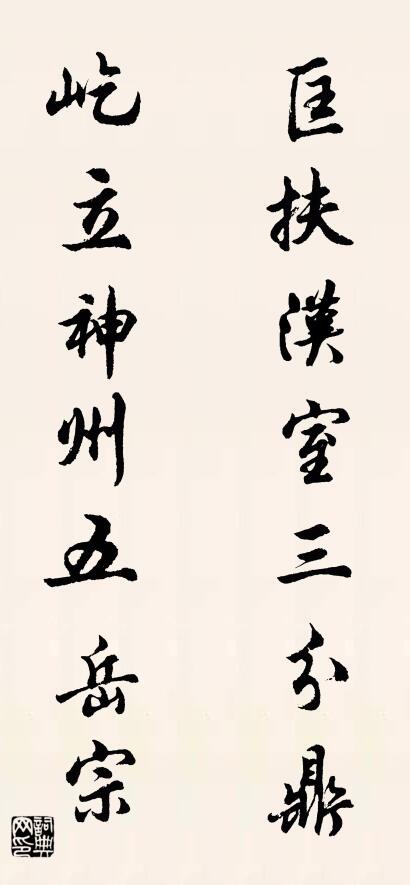 匡扶漢室三分鼎
屹立神州五岳宗
詞典网印